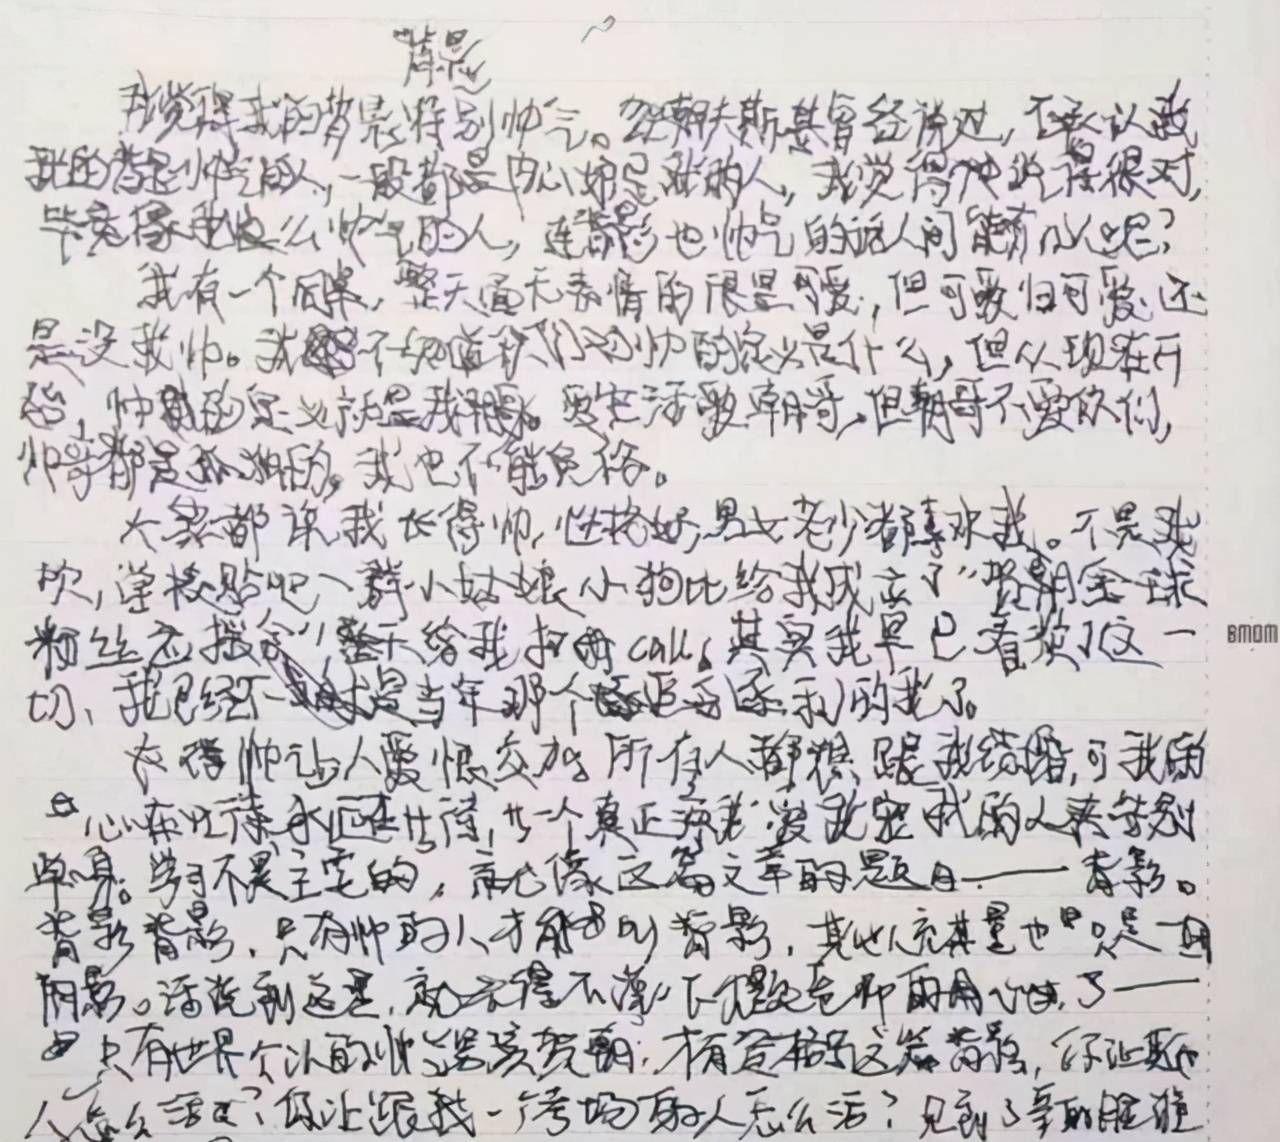 背影
我觉得我的背影特别帅气。贺朝夫斯基曾经说过,不承认我
我的背影帅气的人,一般都是内心嫉妒我的人,我觉得他说得很对,
毕竟像我这么帅气的人,连背影也帅气的话人间能有几人呢?
我有一个同桌,整天面无表情的很是可爱,但可爱归可爱,还
是没我帅。我不知道你们对帅的定义是什么,但从现在开
始,帅的定义就是我贺朝。爱生活爱朝哥,但朝哥不爱你们,
帅哥都是孤独的,我也不能免俗。
大家都说我长得帅,性格好,男女老少都喜欢我。不是我
吹,学校贴吧一群小姑娘小狗比给我成立了“贺朝全球
粉丝后援会”整天给我打call,其实我早已看淡了这一
切,我已经不是当年那个追名逐利的我了。
长得帅让人爱恨交加,所有人都想跟我结婚,可我的
心在忙着等待,等一个真正爱我宠我的人来告别
单身。学习不是主宰的,就像这篇文章的题目——背影。
背影背影,只有帅的人才能叫背影,其他人充其量也只是一团
阴影。话说到这里,就不得不提一下老师的用心了——
只有世界公认的帅气男孩贺朝,才有资格写这篇背影,你让其他
人怎么活?你让跟我一个考场的人怎么活?见到了
BMDM